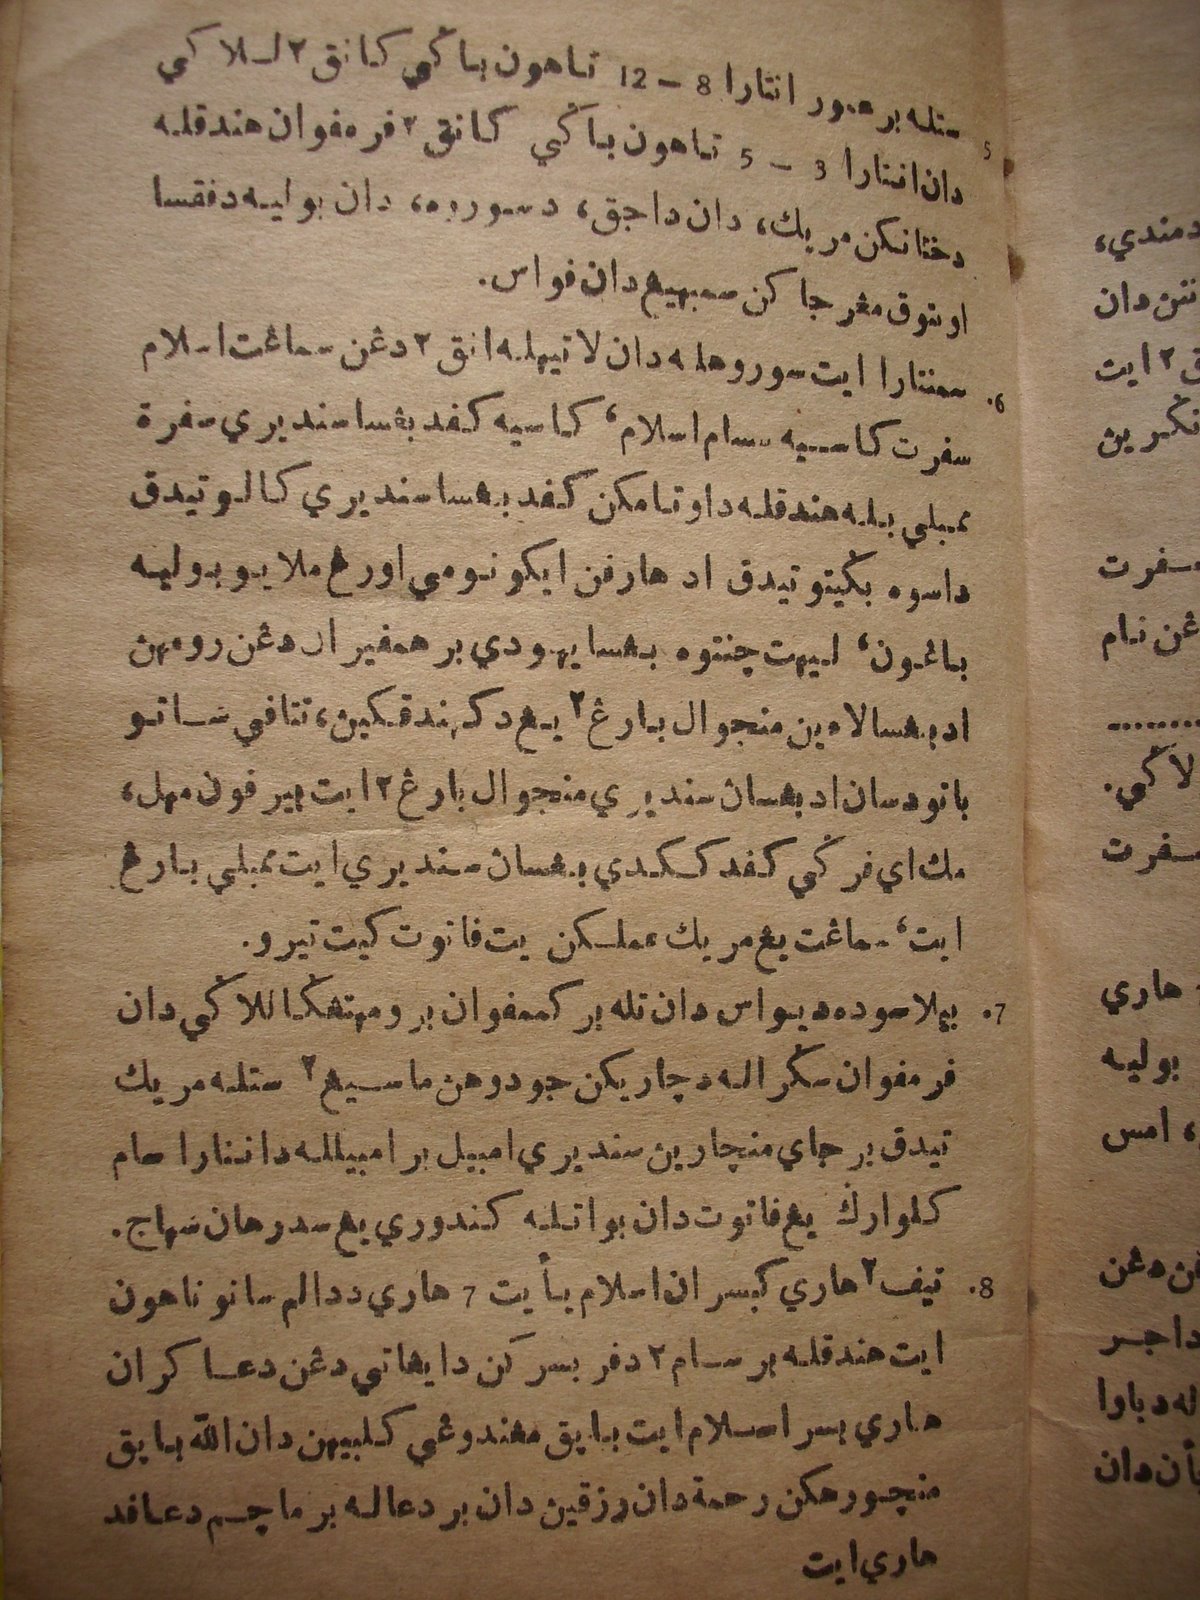 5 ستله برعمور انتارا 8 – 12 تاهون باݢي کانق٢ للاکي
دان انتارا 3 – 5 تاهون باݢي کانق٢ فرمفوان هندقله
دختانکن مريك، دان داجق، دسوروه، دان بوليه دفقسا
اونتوق مڠرجاکن سمبهيڠ دان فواس.
6. سمنتارا ايت سوروهله دان لاتيهله انق٢ دڠن سماڠت اسلام
سفرت کاسيه سسام اسلام، کاسيه کفد بڠسا سنديري سفرة
ممبلي بله هندقله داوتامکن کفد بڠسا سنديري کالو تيدق
داسوه بݢيتو تيدق اد هارفن ايکونومي اورڠ ملايو بوليه
باڠون، ليهت چنتوه بڠسا يهودي برهمفيران دڠن رومهن
اد بڠسا لاءين منجوال بارڠ٢ يڠ دکهندقکين، تتافي ساتو
باتو دسان اد بڠسان سنديري منجوال بارڠ٢ ايت هيرفون مهل،
مك اي فرݢي کفد ککدي بڠسان سنديري ايت ممبلي بارڠ
ايت، سماڠت يڠ مريك عملکن يت فاتوت کيت تيرو.
7. بيلا سوده ديواس دان تله برکممفوان برومهتڠݢا للاکي دان
فرمفوان سݢراله دچاريکن جودوهن ماسيڠ٢ ستله مريك
تيدق برجاي منچارين سنديري امبيل برامبيلله دانتارا سام
کلوارݢ يڠ فاتوت دان بواتله کندوري يڠ سدرهان سهاج.
8. تيف٢ هاري کبسران اسلام يأيت 7 هاري ددالم ساتو تاهون
ايت هندقله برسام٢ دفربسرکن دايهاتي دڠن دعا کران
هاري بسر اسلام ايت بايق مڠندوڠي کلبيهن دان الله بايق
منچورهکن رحمة دان رزقين دان بردعاله برماچم دعا فد
هاري ايت
دمندي،
نتن دان
ق٢ ايت
سفرت
ڠن نام
........
لاݢي.
سفرت
هاري
بوليه
، امس
ن دڠن
داجر
له دباوا
أن دان